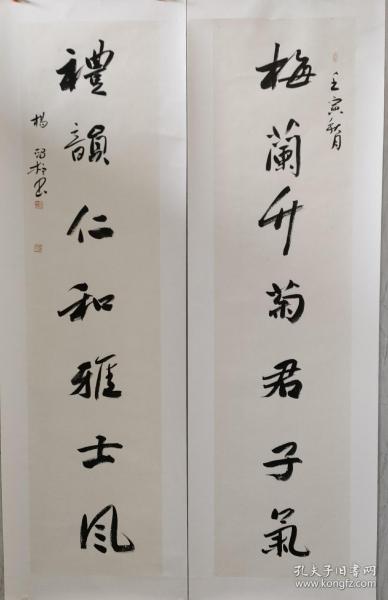 壬寅秋月
梅蘭竹菊君子氣
禮韻仁和雅士風
楊
孔夫子旧书网